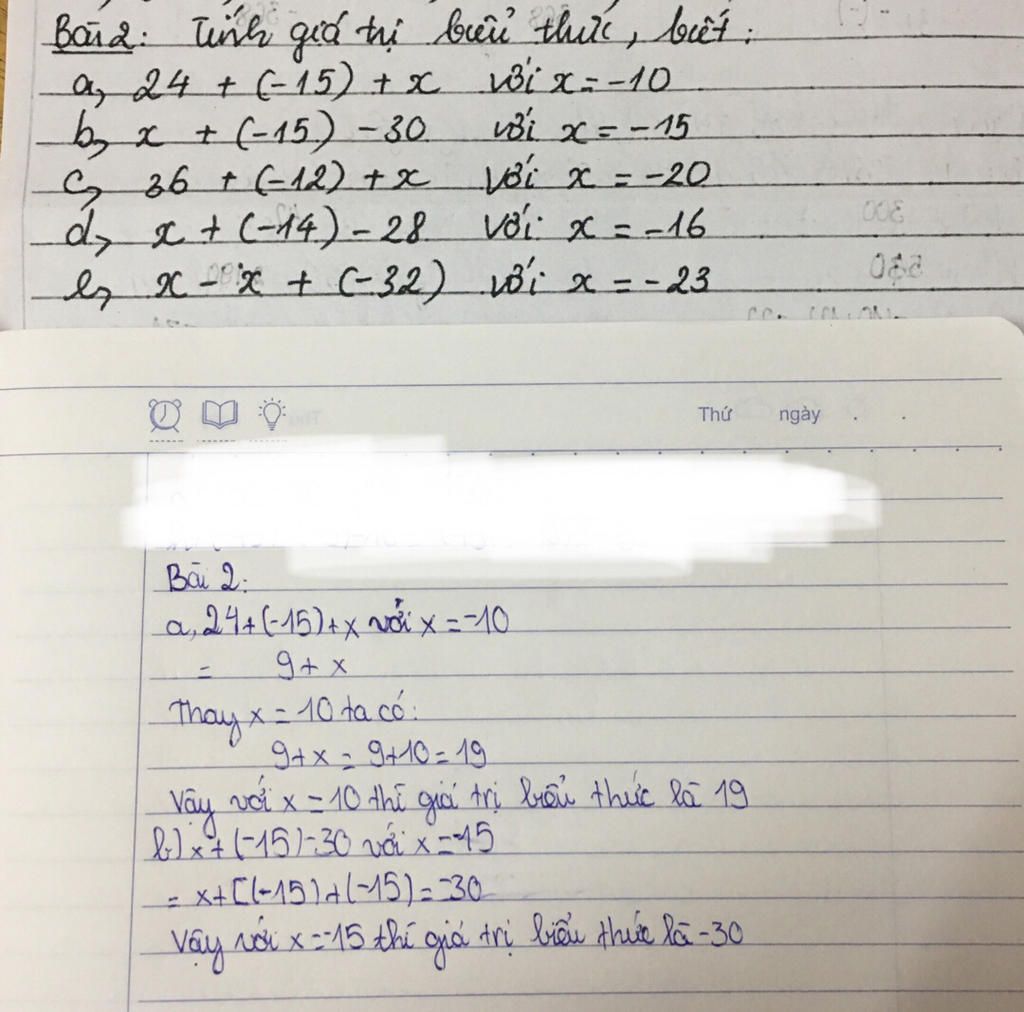 Bài 2: Tính giá trị biểu thức, biết:
a, 24 + (-15) + x với x = -10
b, x + (-15) - 30 với x = -15
c, 36 + (-12) + x với x = -20
d, x + (-14) - 28 với x = -16
e, x - x + (-32) với x = -23
Thứ ngày . .
Bài 2:
a, 24+(-15)+x với x = -10
= 9+ x
Thay x = 10 ta có:
9+x = 9+10 = 19
Vậy với x = 10 thì giá trị biểu thức là 19
b) x+(-15)-30 với x = -15
= x+[(-15)+(-15) = -30
Vậy với x = -15 thì giá trị biểu thức là -30